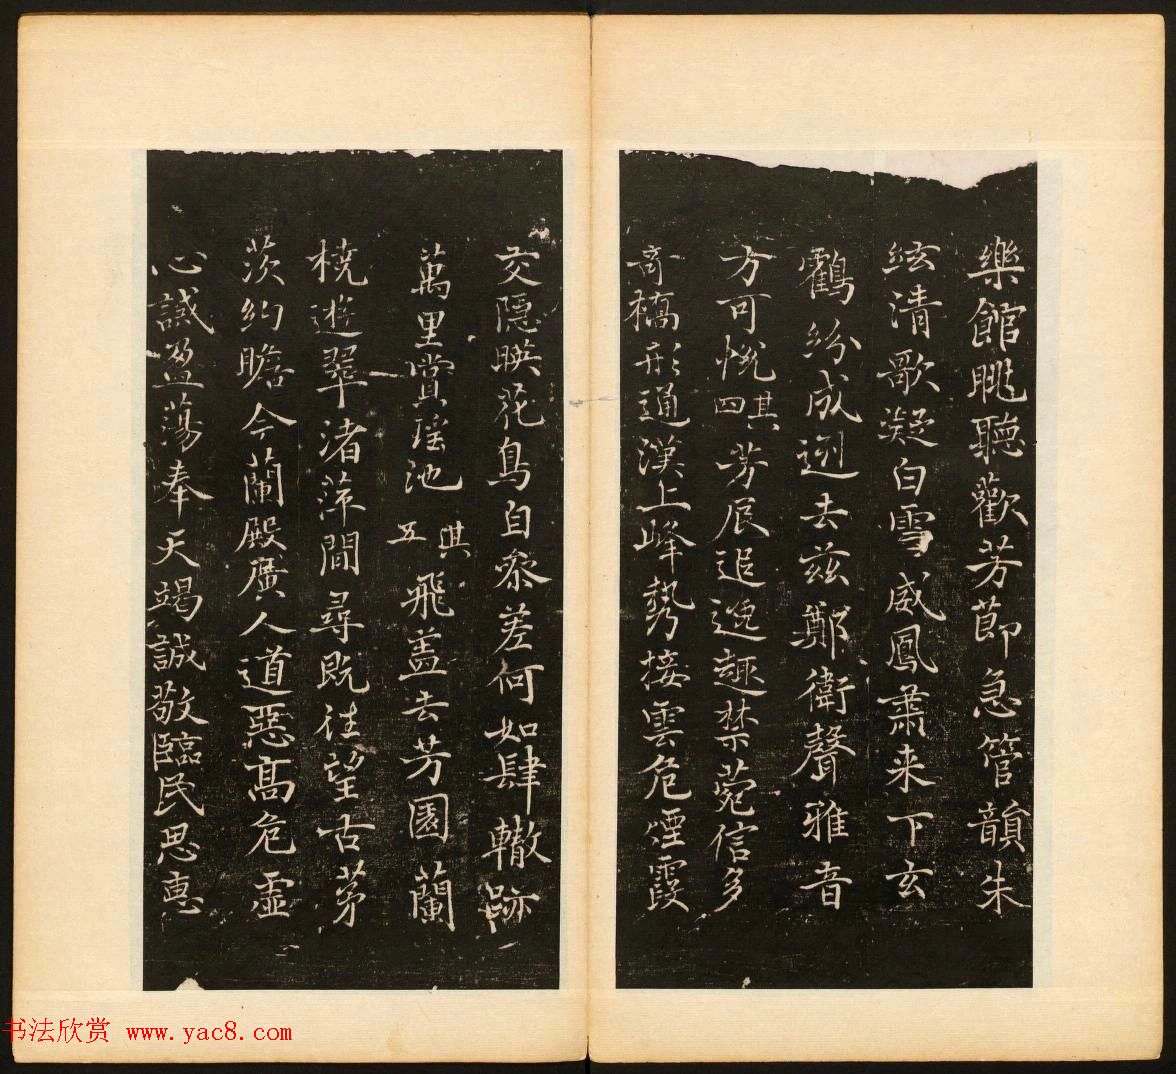 樂館眺聽歡芳節急管韻朱
絃清歌凝白雪威鳳肅来下玄
鸖紛成迾去兹鄭衛聲雅音
方可悦其四芳辰追逸趣禁菀信多
奇橋形通漢上峰勢接雲危煙霞
交隱映花鳥自參差何如肆轍跡
萬里賞瑶池其五飛盖去芳園蘭
橈遊翠渚萍間尋既往望古茅
茨約瞻今蘭殿廣人道惡高危虛
心誡盈蕩奉天竭誠敬臨民思惠
书法欣赏 www.yac8.com